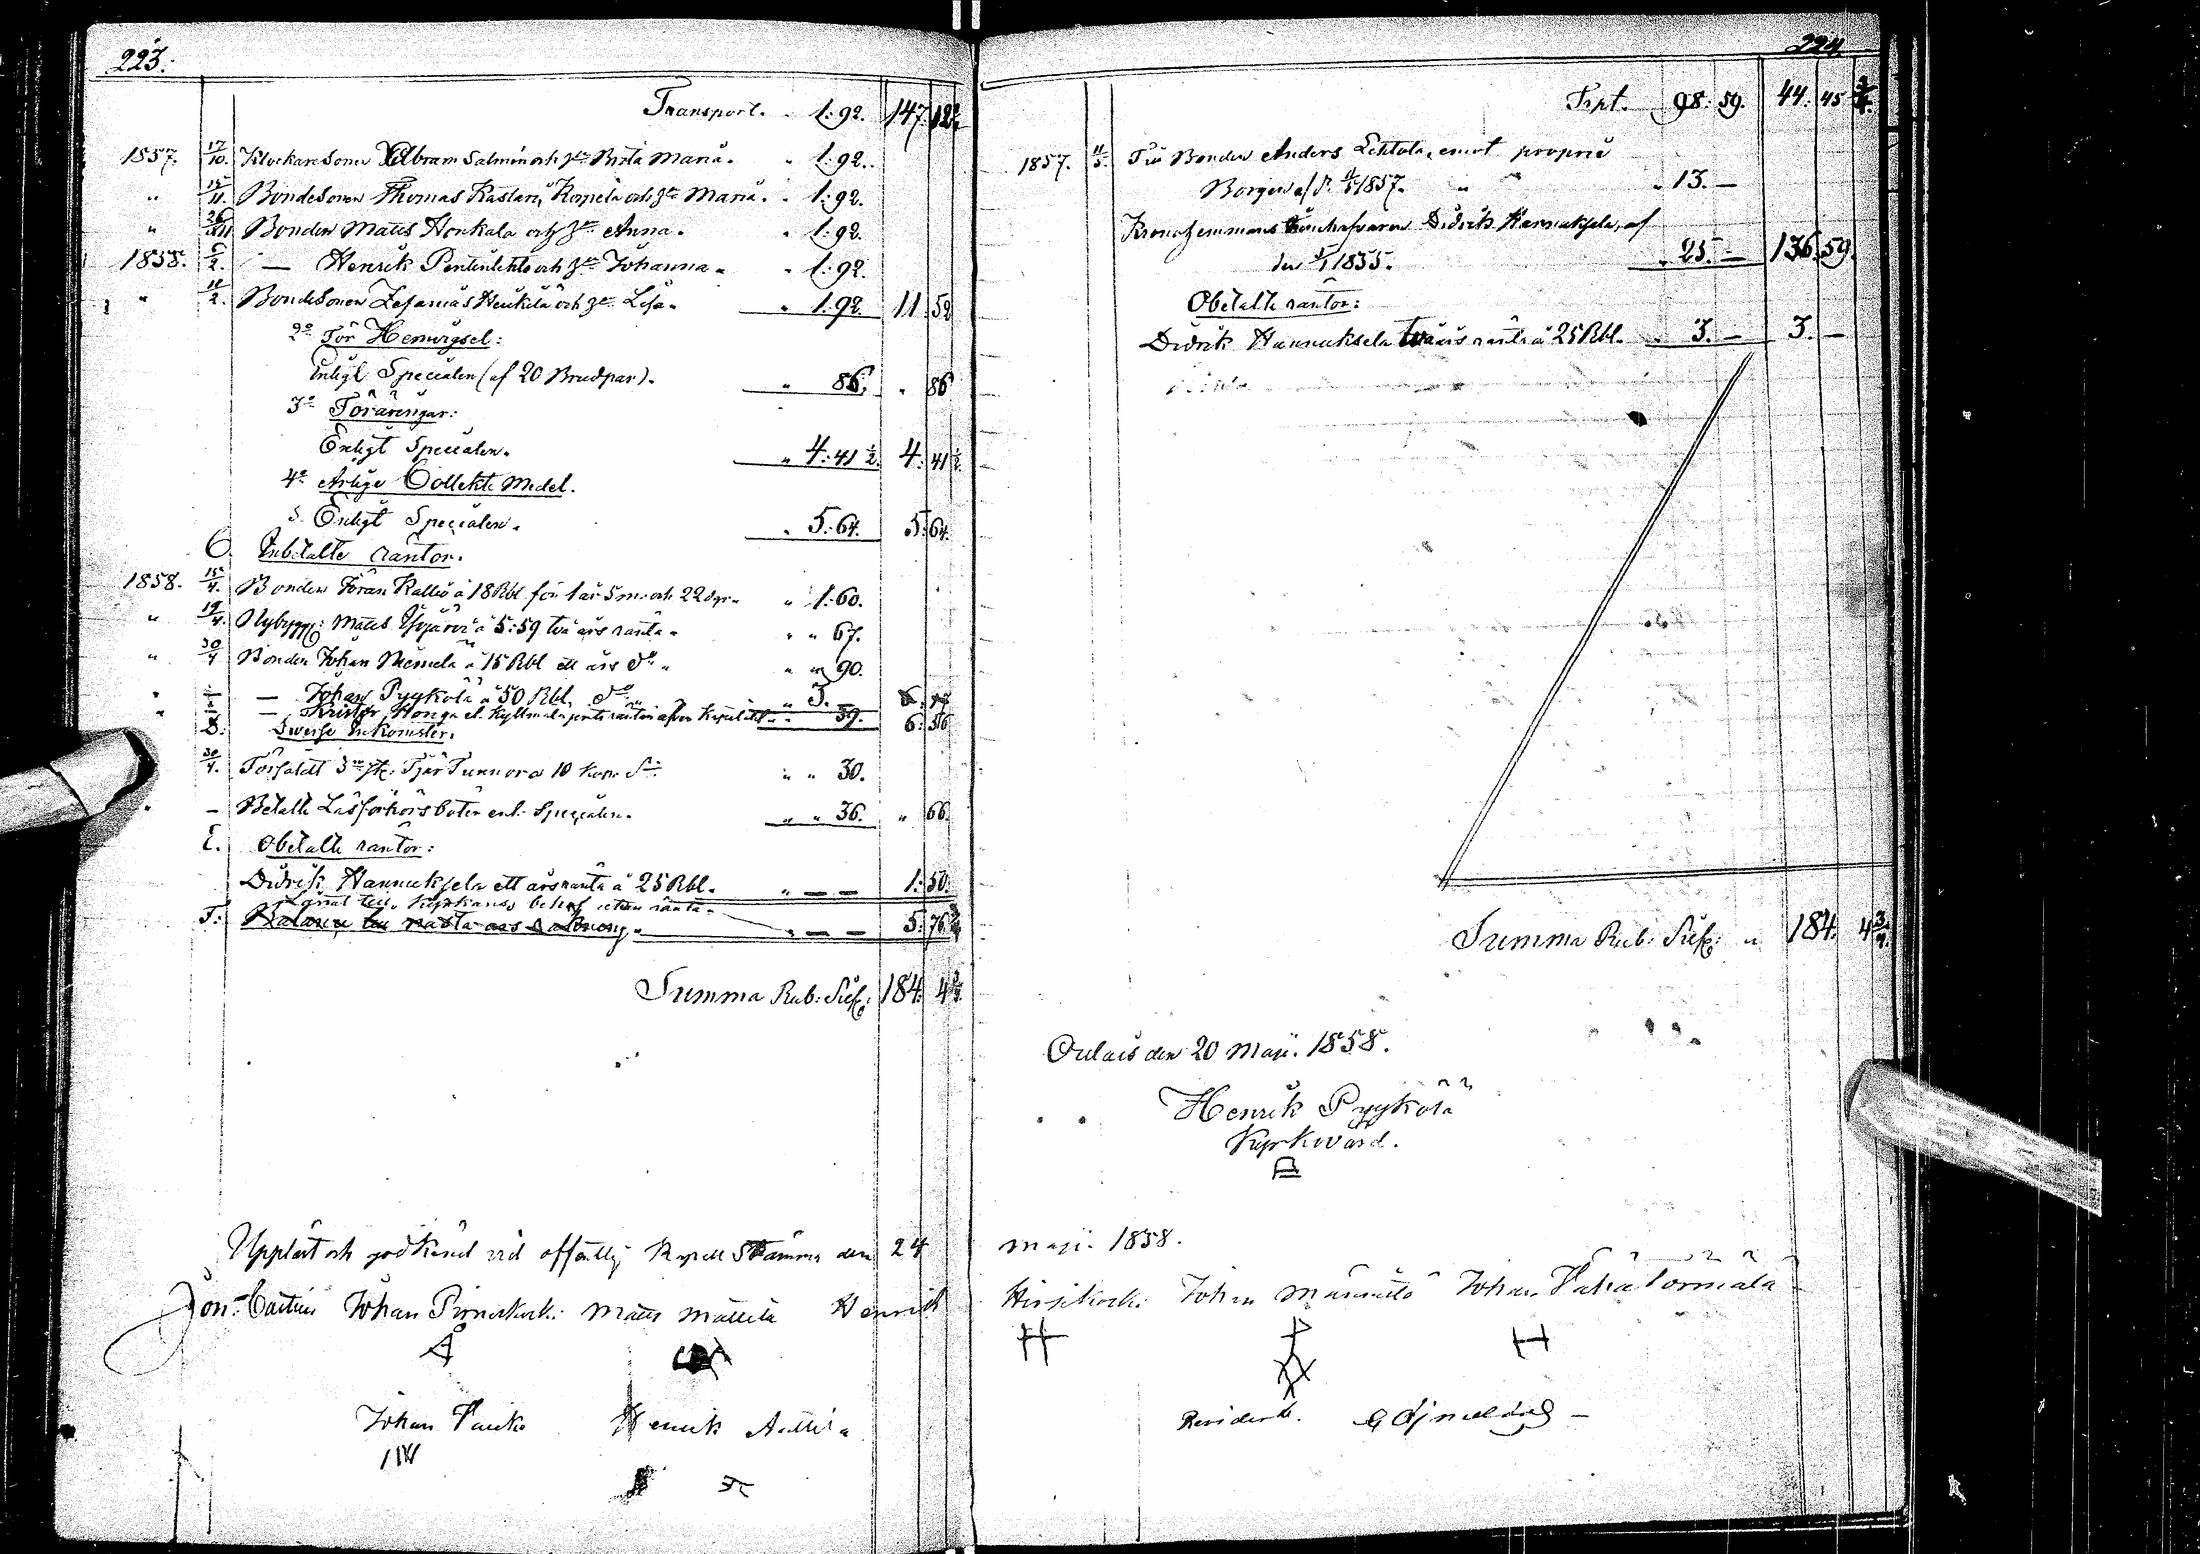 223.
Transport. " 1:92. 147. 12 1/2
1857. 17/10. Klockaresonen Abram Salmin och h:n Brita Maria. " 1:92.
" 15/11. Bondesonen Thomas Kastari, Korpela och h:n Maria. " 1:92.
" 26/11 Bonden Matts Honkala och h:n Anna. " 1:92.
1858. /2. — Henrik Pentinlehto och h:n Johanna. " 1:92.
" 11/2. Bondesonen Zefanias Heikilä och h:n Lisa. " 1:92. 11. 52
2:o För Hemvigsel:
Enligt Specialen (af 20 Brudpar). " 86. " 86
3:o Föräringar:
Enligt Specialen. " 4:41 1/2. 4. 41 1/2.
4:o Årlige Collekte Medel.
Enligt Specialen. " 5:64. 5:64.
C. Inbetalte räntor.
1858. 15/4. Bonden Göran Kallio à 18 Rbl för 1 år 5 m. och 22 dgr. " 1:60.
" 19/4. Nybygg: Matts à 5:59 två års ränta. " " 67.
" 30/4 Bonden Johan Niemelä à 15 Rbl ett års d:o. " " 90.
" — Johan Pyykölä à 50 Rbl. d:o " 3. —
" — Krister Honga " 39. 6: 56
D. Diverse Inkomster.
30/4. Försåldt 3:ne st: Tjär Tunnor à 10 kop. S:r " " 30.
" — Betalte Läsförhörsböter enl. Specialen. " " 36. " 66.
E. Obetalte räntor:
Didrik Hannuksela ett års ränta à 25 Rbl. " — — 1:50.
Lånat till Kyrkans behof utan ränta.
F: Balance till nästa års Räkning. " — — 5:76 3/4
Summa Rub: Silf: 184. 4 3/4.
Uppläst och godkänd vid offentlig Kapell Stämma den 24
Jon: Castrén Johan Pirneskoski Matts Mattila Henrik
Johan Kauko Henrik Anttila
224.
Trpt. 98: 59. 44. 45 3/4.
1857. 11/5. Fr: Bonden Anders Lehtola, emot proprié
Borgen af d. 11/5 1857. " " " 13. —
Kronohemmans Didrik Hannuksela, af
den 1/1 1835. " 25. — 136. 59.
Obetalte räntor:
Didrik Hannuksela två års ränta à 25 Rbl. " 3. — 3. —
Summa Rub: Silf: " 184. 4 3/4.
Oulais den 20 Maji. 1858.
Henrik Pyykölä
Kyrkovärd.
maji. 1858.
Hirsikoski Johan Johan Vähätörmälä